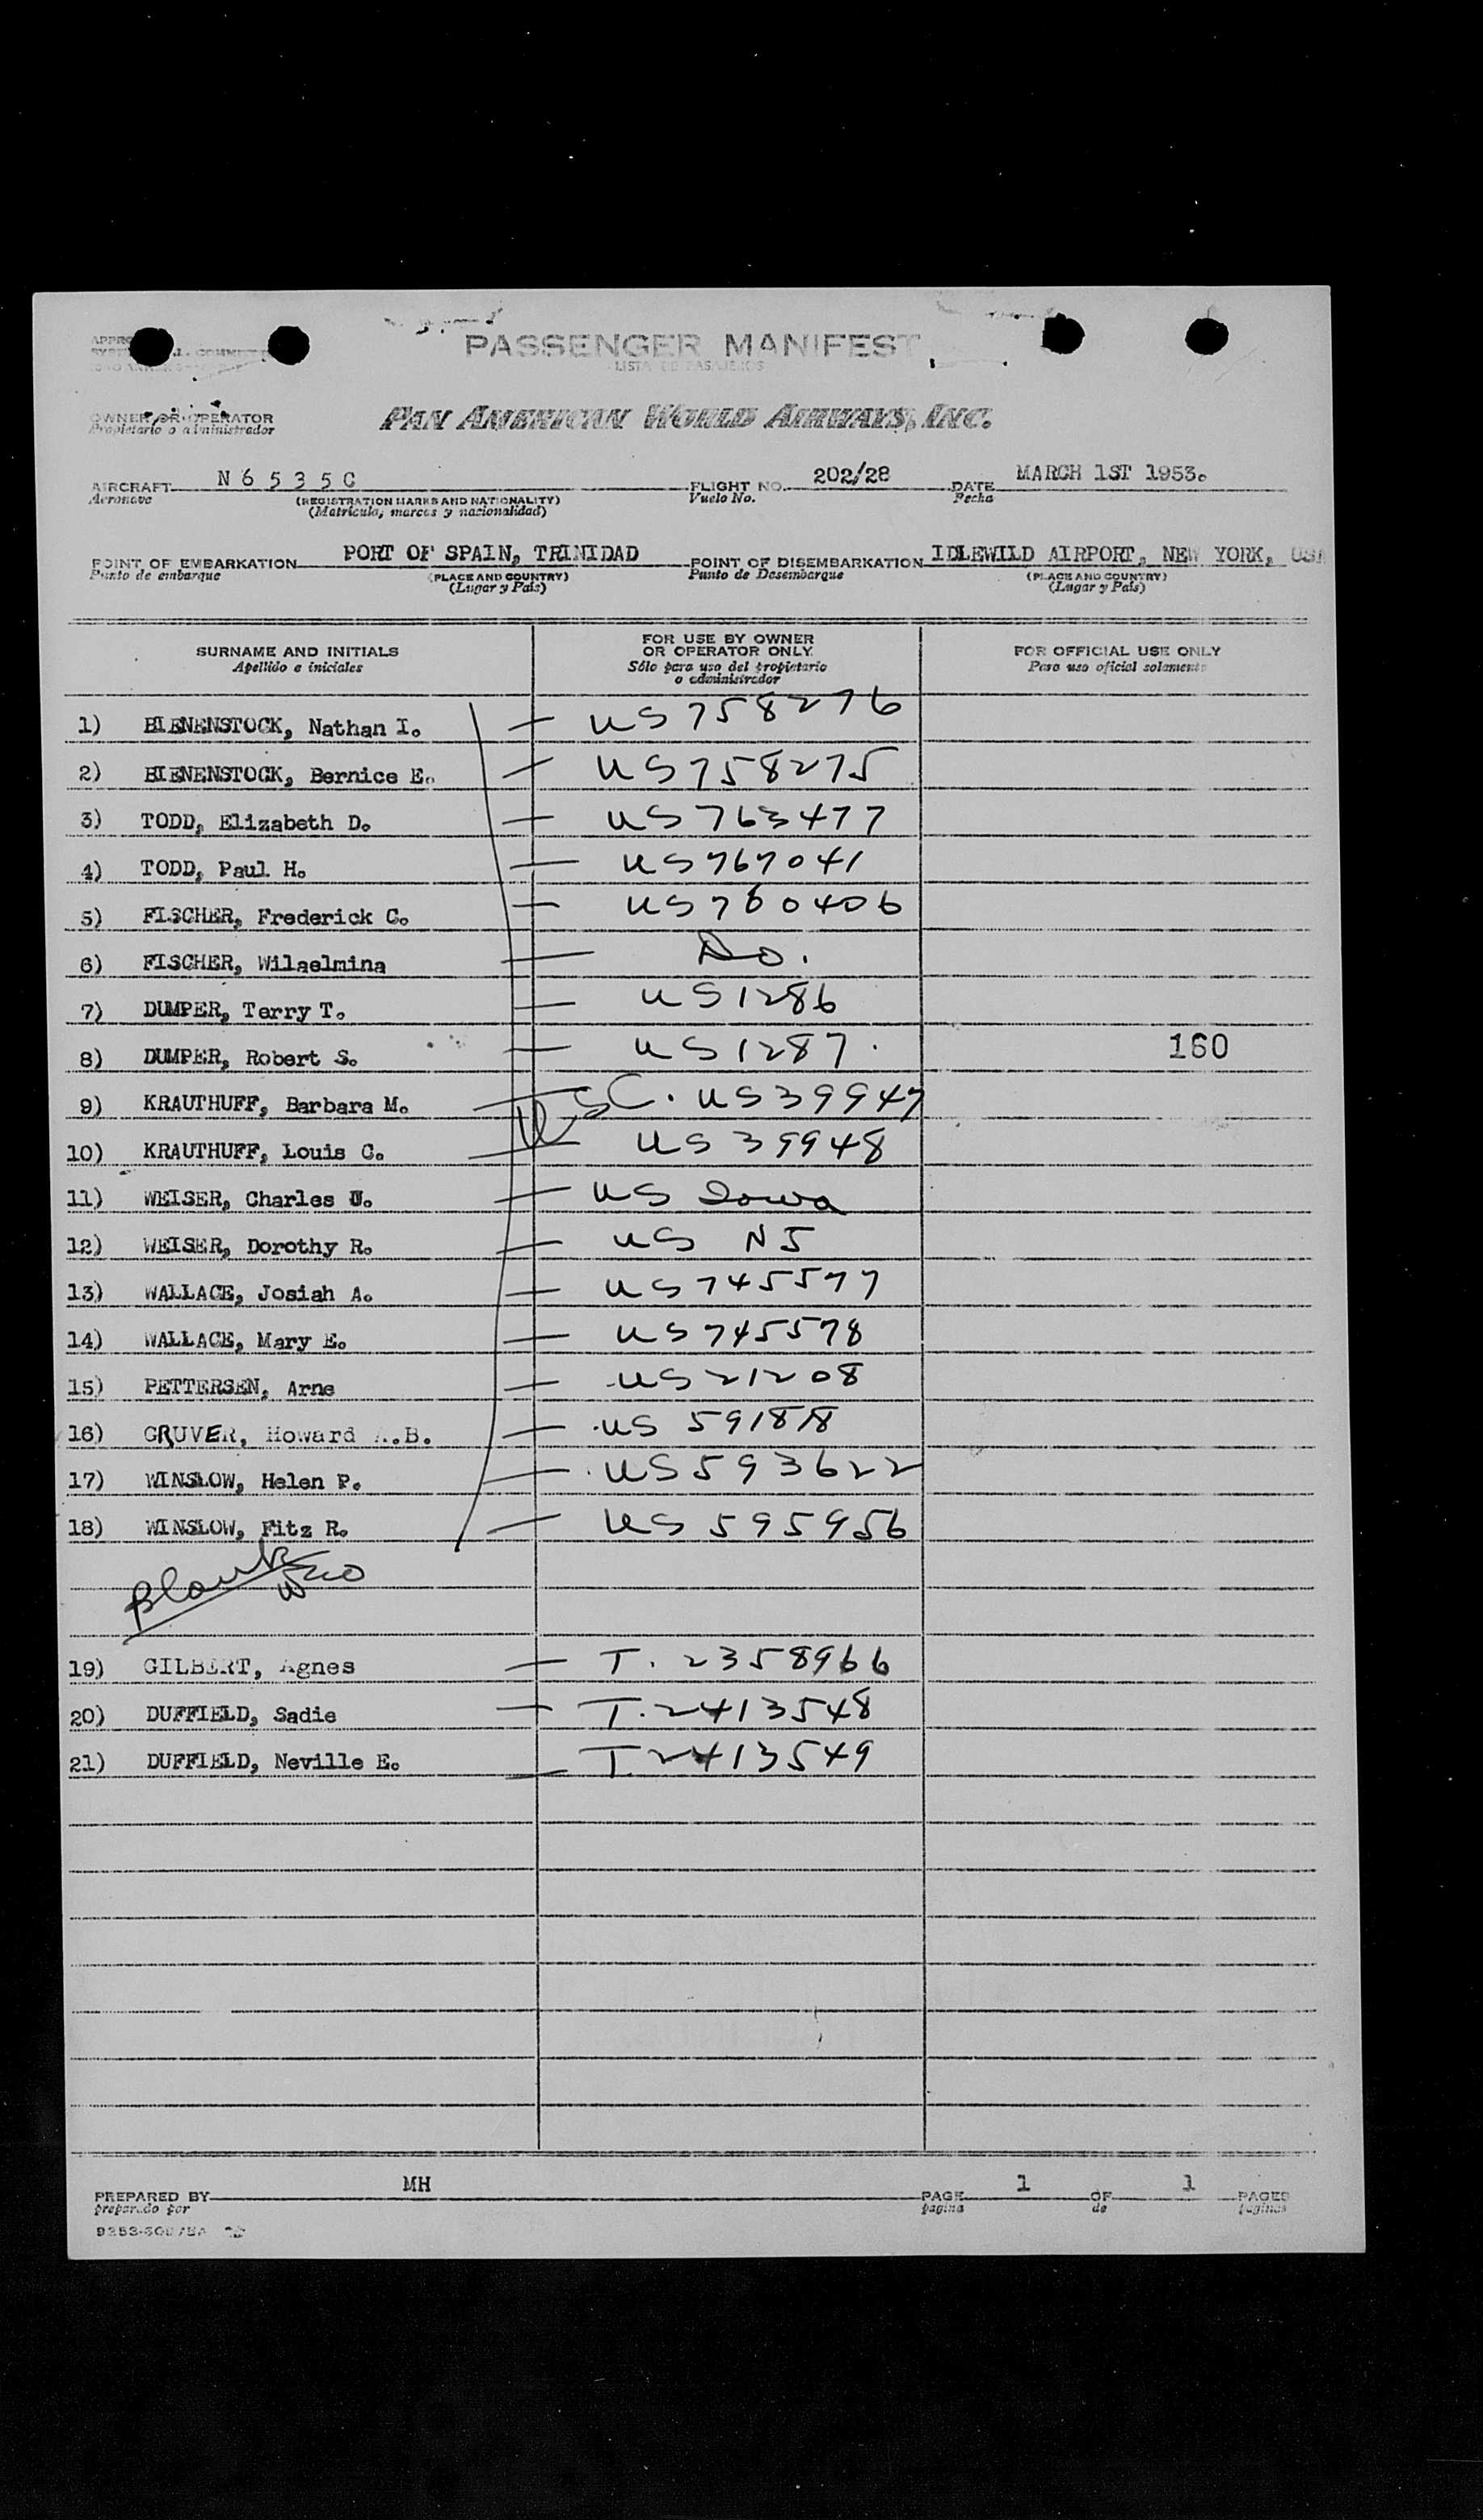 PASSENGER MANIFEST
LISTA DE PASAJEROS
OWNER OR OPERATOR
Propietario o administrador
PAN AMERICAN WORLD AIRWAYS, INC.
AIRCRAFT N 6 5 3 5 C FLIGHT NO. 202/28 DATE MARCH 1ST 1953.
Aeronave (REGISTRATION MARKS AND NATIONALITY) Vuelo No. Fecha
(Matricula, marcas y nacionalidad)
POINT OF EMBARKATION PORT OF SPAIN, TRINIDAD POINT OF DISEMBARKATION IDLEWILD AIRPORT, NEW YORK, USA
Punto de embarque (PLACE AND COUNTRY) Punto de Desembarque (PLACE AND COUNTRY)
(Lugar y País) (Lugar y País)
SURNAME AND INITIALS FOR USE BY OWNER OR OPERATOR ONLY FOR OFFICIAL USE ONLY
Apellido e iniciales Sólo para uso del propietario o administrador Para uso oficial solamente
1) BIENENSTOCK, Nathan I. — US 758276
2) BIENENSTOCK, Bernice E. — US 758275
3) TODD, Elizabeth D. — US 763477
4) TODD, Paul H. — US 767041
5) FISCHER, Frederick C. — US 760406
6) FISCHER, Wilaelmina — Do.
7) DUMPER, Terry T. — US 1286
8) DUMPER, Robert S. — US 1287. 160
9) KRAUTHUFF, Barbara M. — USC. US 39947
10) KRAUTHUFF, Louis C. — US 39948
11) WEISER, Charles U. — US Iowa
12) WEISER, Dorothy R. — US NJ
13) WALLACE, Josiah A. — US 745577
14) WALLACE, Mary E. — US 745578
15) PETTERSEN, Arne — US 21208
16) GRUVER, Howard A.B. — US 591818
17) WINSLOW, Helen P. — US 593622
18) WINSLOW, Fitz R. — US 595956
Blank
19) GILBERT, Agnes — T. 2358966
20) DUFFIELD, Sadie — T. 2413548
21) DUFFIELD, Neville E. — T. 2413549
PREPARED BY MH PAGE 1 OF 1 PAGES
preparado por pagina de paginas